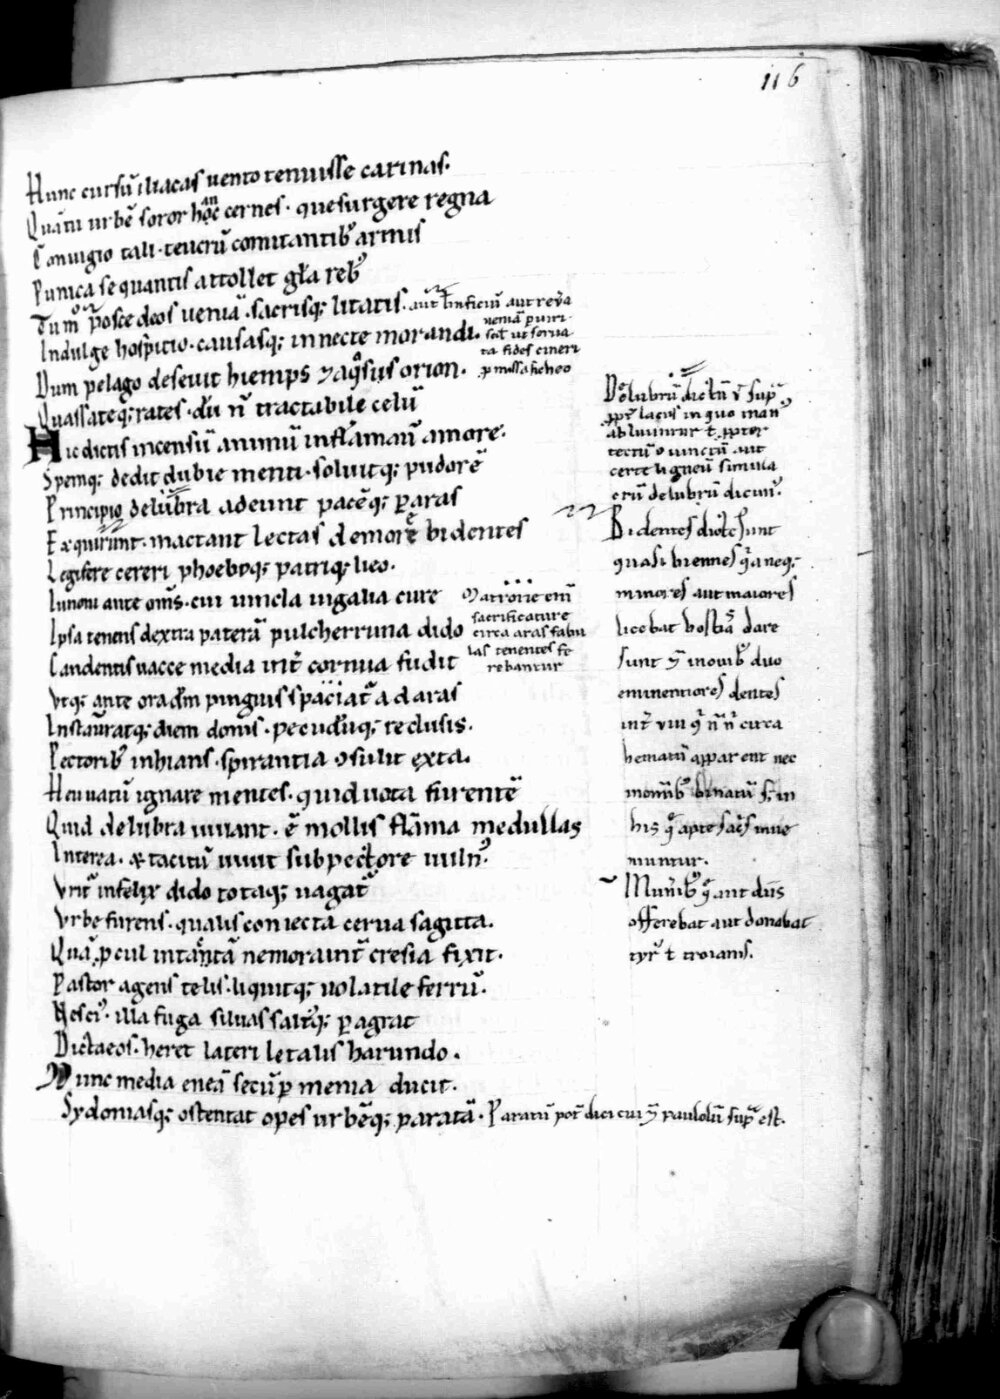 116
Hunc cursū iliacas uento tenuisse carinas.
Quā tu urbē soror hoc an cernes. que surgere regna
Coniugio tali. teucrū comitantibꝰ armis
Punica se quantis attollet gła rebꝰ
Tum posce deos ueniā. sacrisq; litatis.
Indulge hospitio. causasq; innecte morandi.
Dum pelago deseuit hiemps & aqͣsus orion.
Quassateq; rates. dū n̄ tractabile celū
Hic dictis incensū animū inflāmau̅ amore.
Spemq; dedit dubie menti. soluitq; pudorē
Principio delubra adeunt pacēq; ꝑ aras
Exquirunt. mactant lectas de more bidentes
Legifere cereri phoeboq; patriq; lieo.
Iunoni ante om̅s. cui uincla iugalia cure
Ipsa tenens dextra paterā pulcherrima dido
Candentis uacce media int̄ cornua fudit
Vtq; ante ora dm̄ pinguis spaciat̄ ad aras
Instauratq; diem donis. pecudūq; reclusis.
Pectoribꝰ inhians. spirantia ꝯsulit exta.
Heu uatū ignare mentes. quid uota furentē
Quid delubra iuuant. ē mollis flāma medullas
Interea. & tacitū uiuit sub pectore uulnꝰ.
Vrit̄ infelix dido totaq; uagat̄
Vrbe furens. qualis coniecta cerua sagitta.
Quā ꝓcul incautā nemora int̄ cresia fixit.
Pastor agens telis. liquitq; uolatile ferrū.
Nesciꝰ. illa fuga siluas saltꝰq; ꝑagrat
Dictaeos. heret lateri letalis harundo.
Nunc media eneā secū ꝑ menia ducit.
Sydoniasq; ostentat opes urbēq; paratā. Paratū pot̄ dici cui & paulolū suꝑ est.
aut
aut
ueniā
ut serua
ta fides cineri
ꝓmissa sicheo
Matrone eni̅
sacrificature
circa aras fabu
las tenentes fe
rebantur
Delubrū dictū
lacus in quo man
abluuntur ł ꝓpter
tectū ꝯiunctū aut
certe ligneū simula
crū delubrū dicimꝰ.
Bidentes dicte sunt
quasi biennes qͣ neq;
minores aut maiores
licebat hostiā dare
sunt & in ouibꝰ duo
eminentiores dentes
int̄ viii qͥ n̄ n̄ circa
bematū apparent nec
in
his qͥ apte sacͥs inue
niuntur.
Munͥbꝰ qͤ aut diis
offerebat aut donabat
tyrͥ ł troianis.